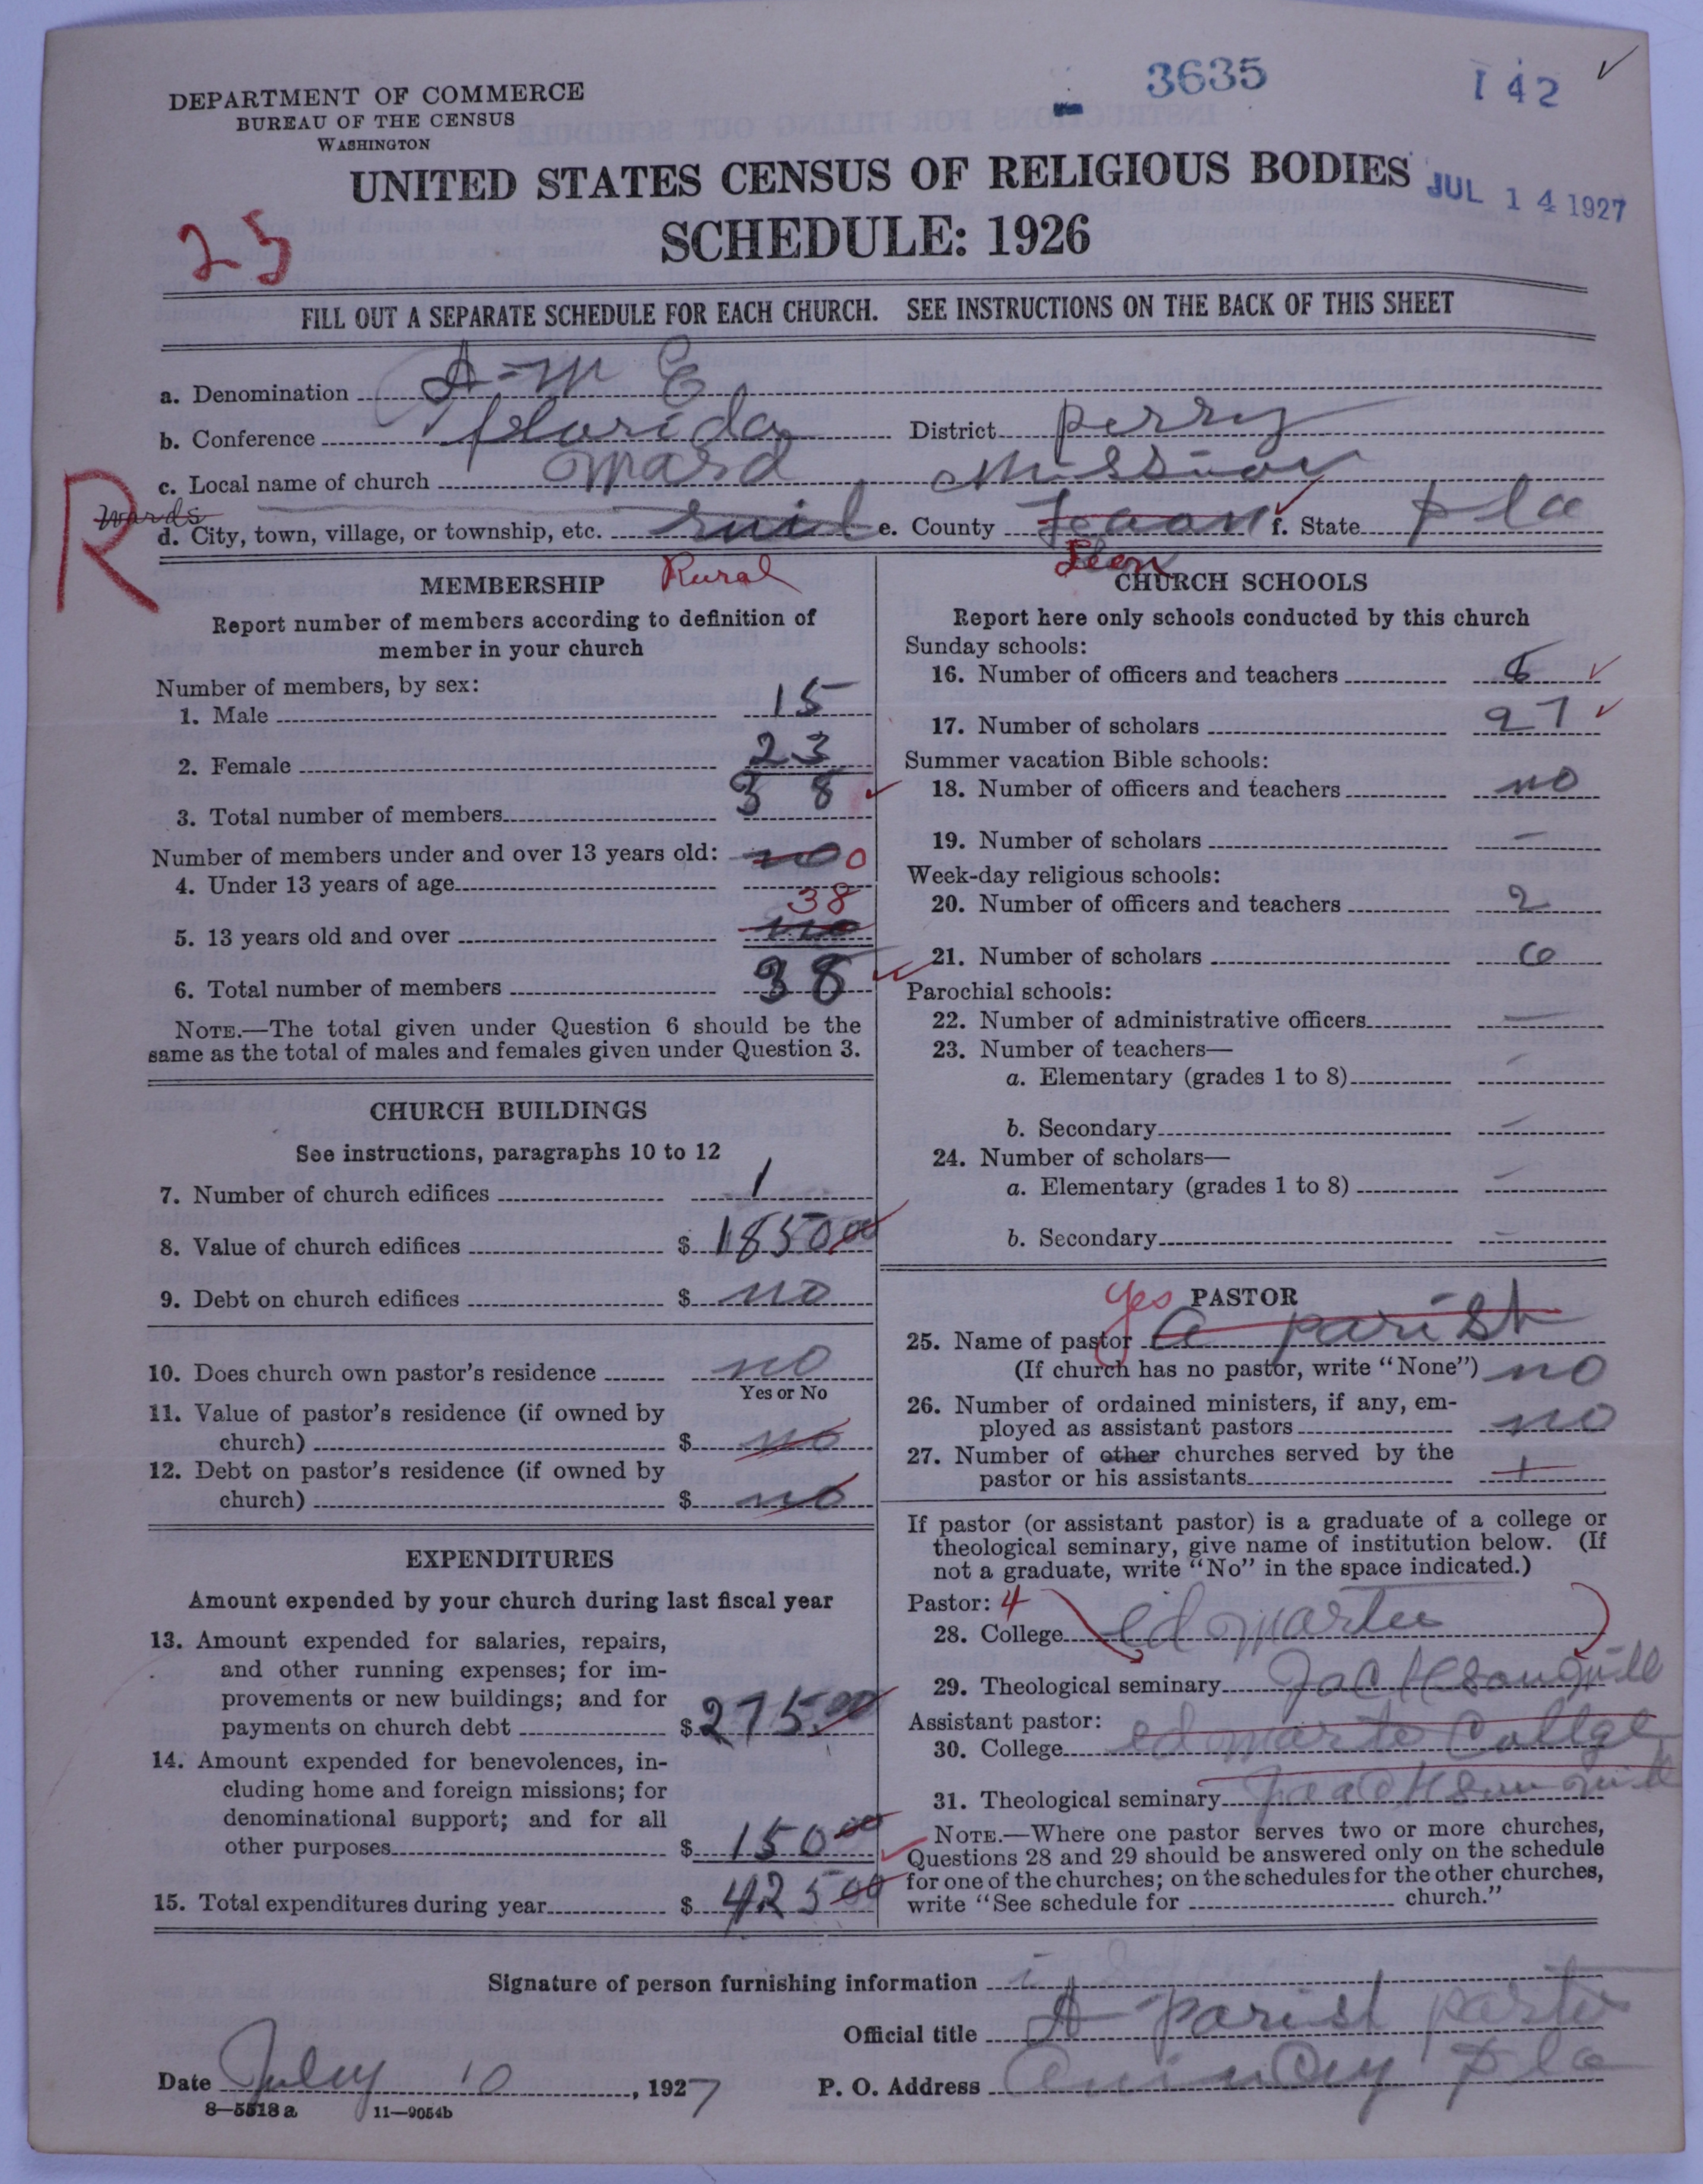 3635
142 ✓
DEPARTMENT OF COMMERCE
BUREAU OF THE CENSUS
WASHINGTON
UNITED STATES CENSUS OF RELIGIOUS BODIES
JUL 14 1927
SCHEDULE: 1926
25
FILL OUT A SEPARATE SCHEDULE FOR EACH CHURCH. SEE INSTRUCTIONS ON THE BACK OF THIS SHEET
a. Denomination A-M E
b. Conference Florida District Perry
c. Local name of church Ward Mission
R
Wards
d. City, town, village, or township, etc. e. County f. State Fla
Leon
Rural
MEMBERSHIP
Report number of members according to definition of
member in your church
Number of members, by sex:
1. Male 15
2. Female 23
3. Total number of members 38
Number of members under and over 13 years old: no 0
4. Under 13 years of age
38
5. 13 years old and over no
6. Total number of members 38
NOTE.—The total given under Question 6 should be the
same as the total of males and females given under Question 3.
CHURCH BUILDINGS
See instructions, paragraphs 10 to 12
7. Number of church edifices 1
8. Value of church edifices $ 1850 00
9. Debt on church edifices $ no
10. Does church own pastor's residence no
Yes or No
11. Value of pastor's residence (if owned by
church) $ no
12. Debt on pastor's residence (if owned by
church) $ no
EXPENDITURES
Amount expended by your church during last fiscal year
13. Amount expended for salaries, repairs,
and other running expenses; for im-
provements or new buildings; and for
payments on church debt $ 275.00
14. Amount expended for benevolences, in-
cluding home and foreign missions; for
denominational support; and for all
other purposes $ 150 00
15. Total expenditures during year $ 425 00
CHURCH SCHOOLS
Report here only schools conducted by this church
Sunday schools:
16. Number of officers and teachers
17. Number of scholars 27
Summer vacation Bible schools:
18. Number of officers and teachers no
19. Number of scholars –
Week-day religious schools:
20. Number of officers and teachers 2
21. Number of scholars 6
Parochial schools:
22. Number of administrative officers —
23. Number of teachers—
a. Elementary (grades 1 to 8) –
b. Secondary –
24. Number of scholars—
a. Elementary (grades 1 to 8) –
b. Secondary –
Yes PASTOR
25. Name of pastor A parish
(If church has no pastor, write "None") no
26. Number of ordained ministers, if any, em-
ployed as assistant pastors no
27. Number of other churches served by the
pastor or his assistants 1
If pastor (or assistant pastor) is a graduate of a college or
theological seminary, give name of institution below. (If
not a graduate, write "No" in the space indicated.)
Pastor: 4
28. College ed warter
29. Theological seminary
Assistant pastor:
30. College ed warte Collge
31. Theological seminary
NOTE.—Where one pastor serves two or more churches,
Questions 28 and 29 should be answered only on the schedule
for one of the churches; on the schedules for the other churches,
write "See schedule for church."
Signature of person furnishing information
Official title A parish paster
Date July 10, 1927 P. O. Address Quincy Fla
8—5518 a 11—9054b